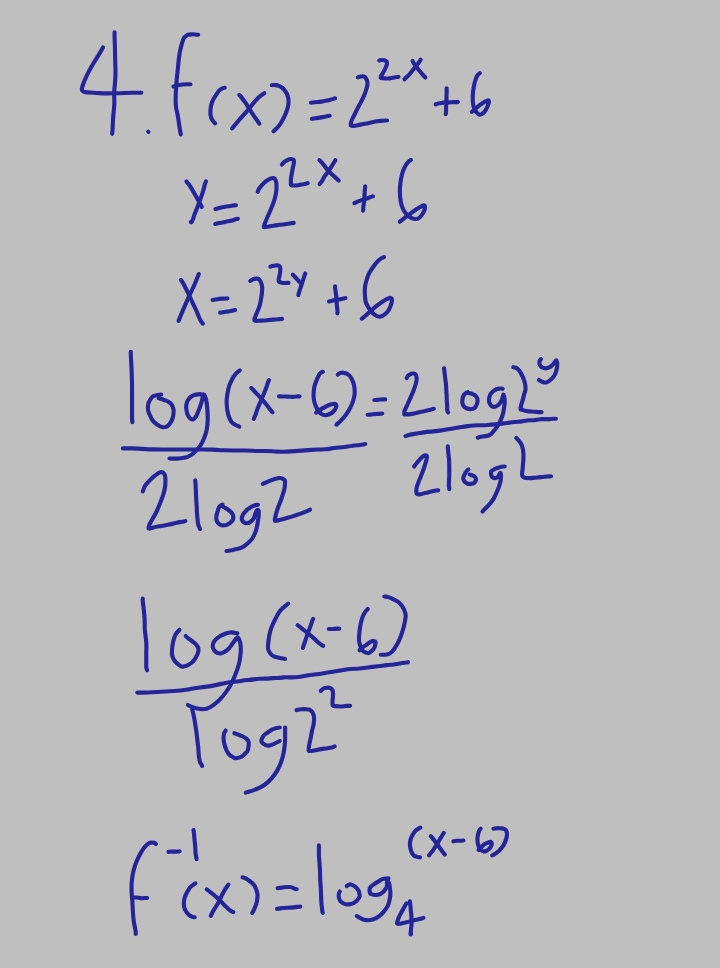 4. f(x) = 2^{2x} + 6
y = 2^{2x} + 6
x = 2^{2y} + 6
\frac{log(x-6)}{2log2} = \frac{2log2^y}{2log2}
\frac{log(x-6)}{log2^2}
f^{-1}(x) = log_4^{(x-6)}